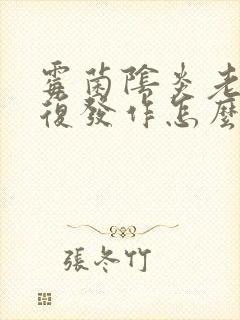 霉菌陰炎老
復發作怎麼
張冬竹